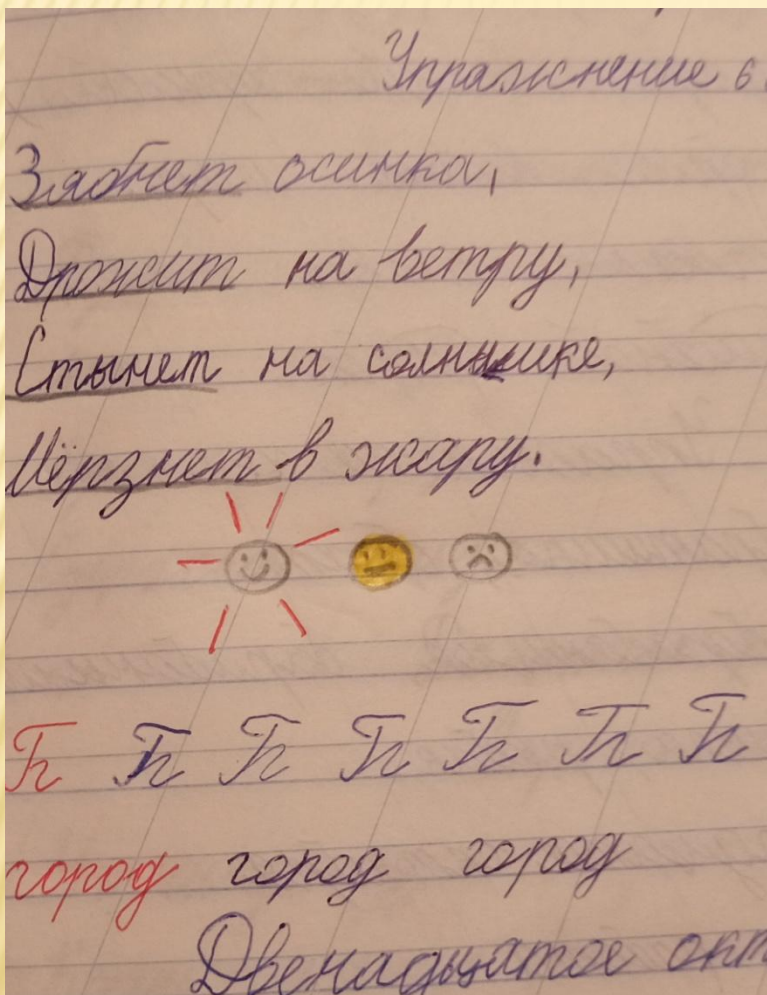 Упражнение 6
Зябнет осинка,
Дрожит на ветру,
Стынет на солнышке,
Мёрзнет в жару.
город город город
Двенадцатое окт